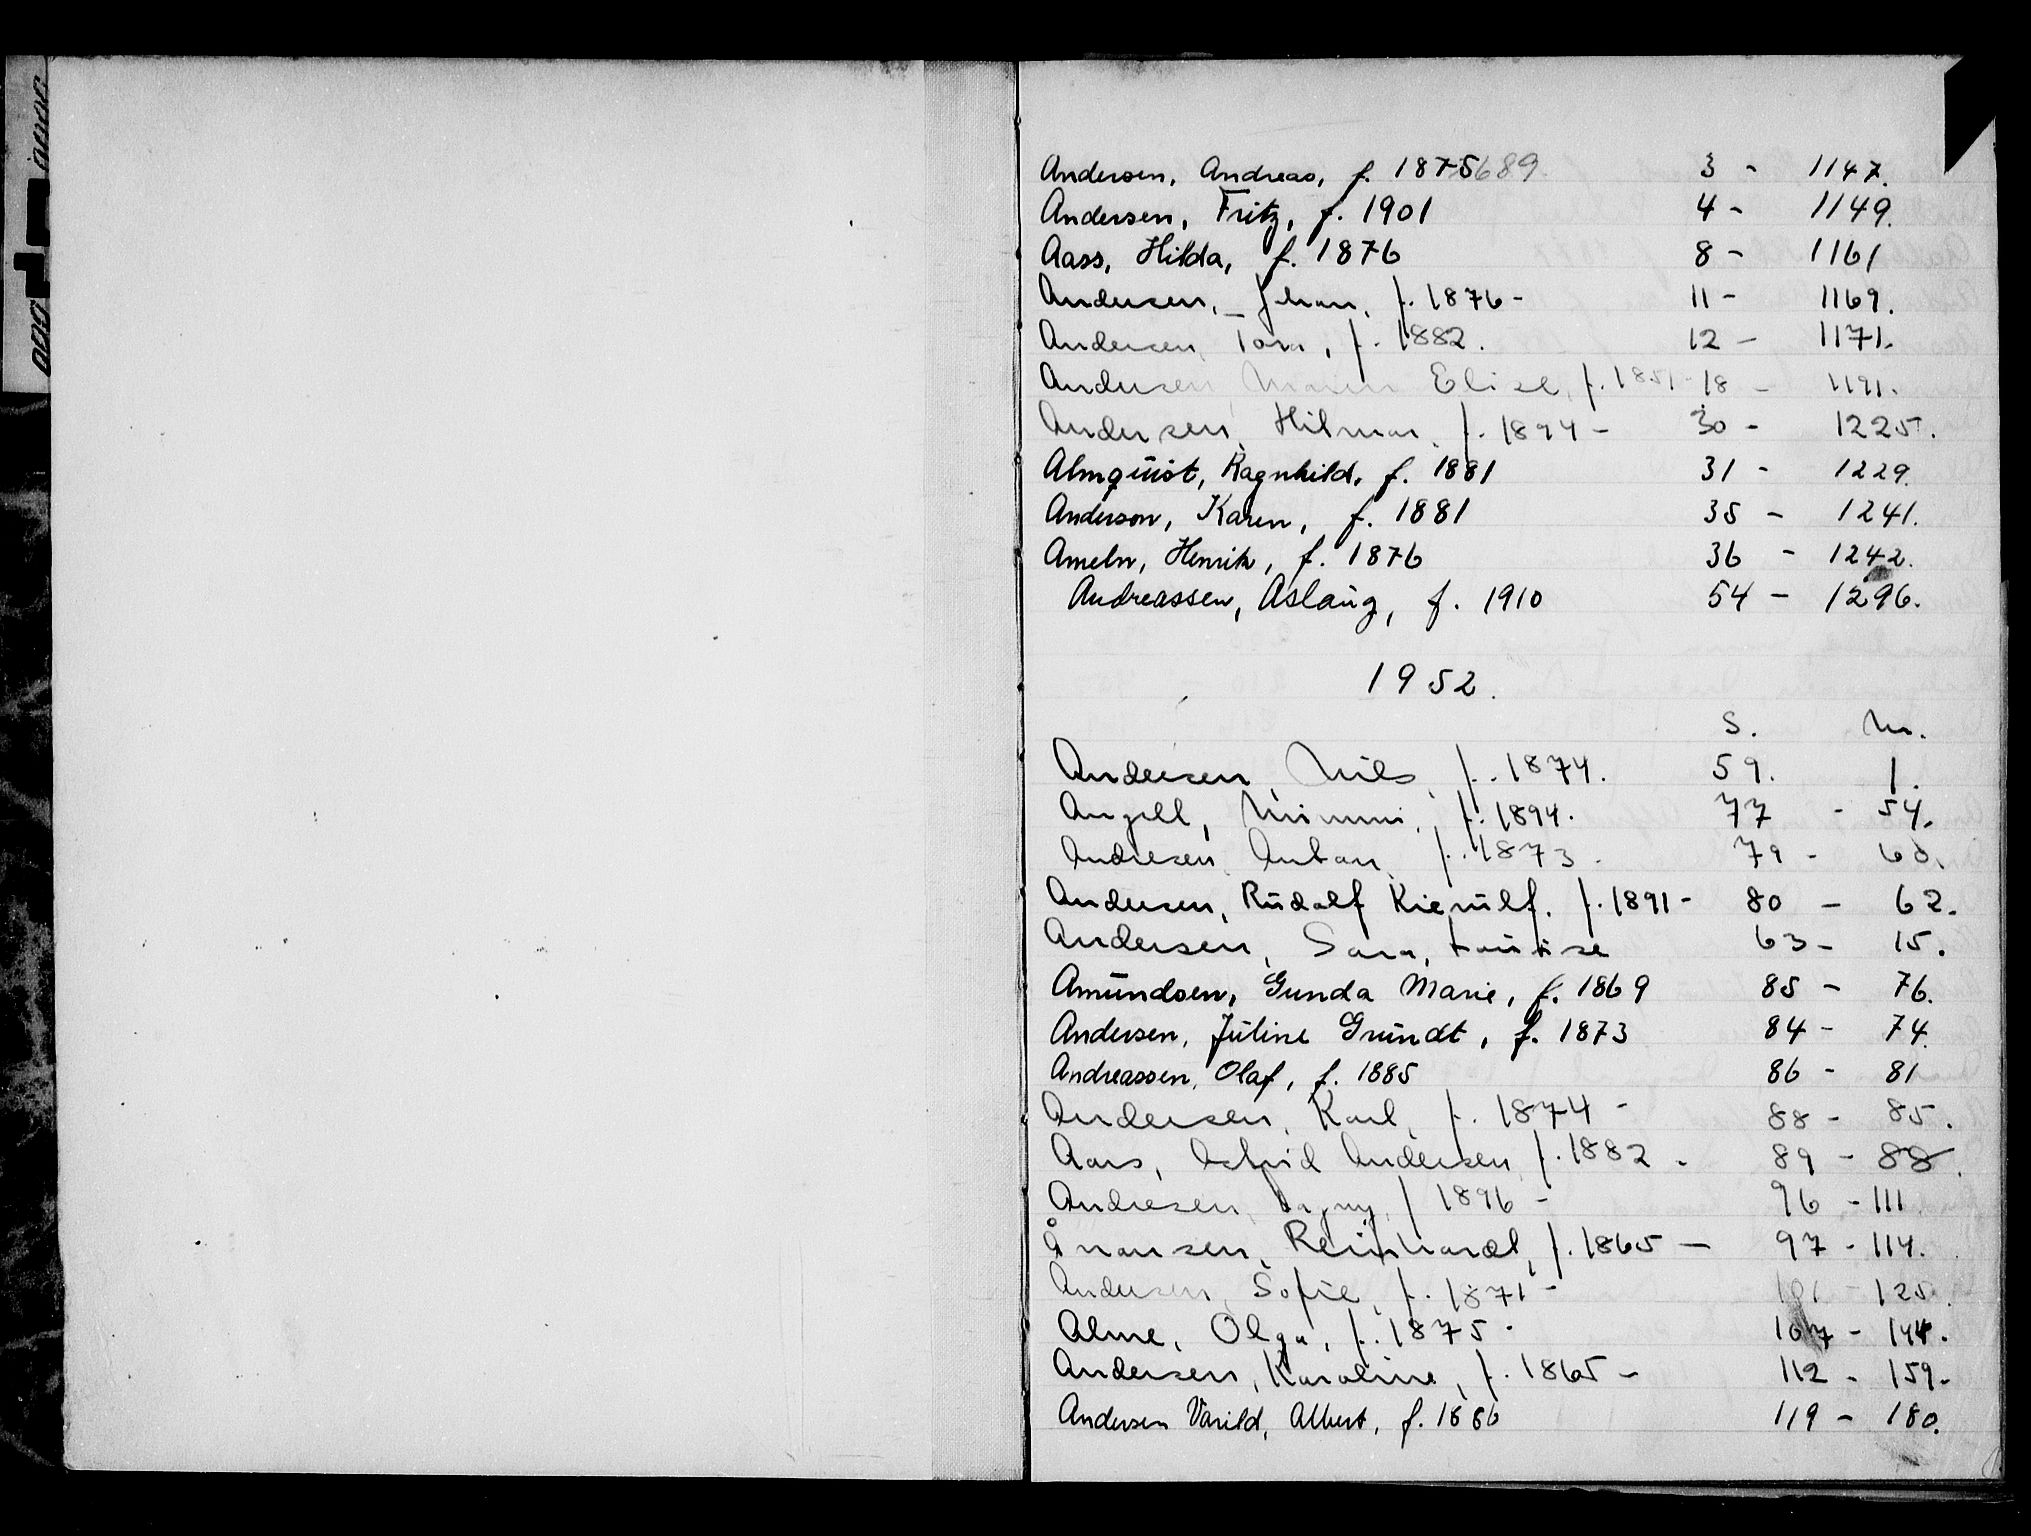 Andersen, Andreas, f. 1875689. 3 - 1147.
Andersen, Fritz, f. 1901 4 - 1149.
Aass, Hilda, f. 1876 8 - 1161
Andersen, Johan, f. 1876 - 11 - 1169.
Andersen, Tora, f. 1882. 12 - 1171.
Andersen, Maren Elise, f. 1851 - 18 - 1191.
Andersen, Hilmar, f. 1894 - 30 - 1225.
Almquist, Ragnhild, f. 1881 31 - 1229.
Anderson, Karen, f. 1881 35 - 1241.
Ameln, Henrik, f. 1876 36 - 1242.
Andreassen, Aslaug, f. 1910 54 - 1296.
1952.
S. Nr.
Andersen, Nils, f. 1874. 59. 1.
Angell, Mimmi, f. 1894. 77 - 54.
Andresen, Anton, f. 1873. 79 - 60.
Andersen, Rudolf Kierulf. f. 1891 - 80 - 62.
Andersen, Sara, Louise 63 - 15.
Amundsen, Gunda Marie, f. 1869 85 - 76.
Andersen, Juline Grundt, f. 1873 84 - 74.
Andreassen, Olaf, f. 1885 86 - 81
Andersen, Karl, f. 1874 - 88 - 85.
Aars, Astrid Andersen, f. 1882. 89 - 88.
Andresen, Dagny, f 1896 - 96 - 111.
Ånonsen, Reinhardt, f. 1865 - 97 - 114.
Andersen, Sofie, f. 1871 - 101 - 125.
Alme, Olga, f. 1875. 107 - 144.
Andersen, Karoline, f. 1865 - 112 - 159.
Andersen Varild, Albert, f. 1886 119 - 180.